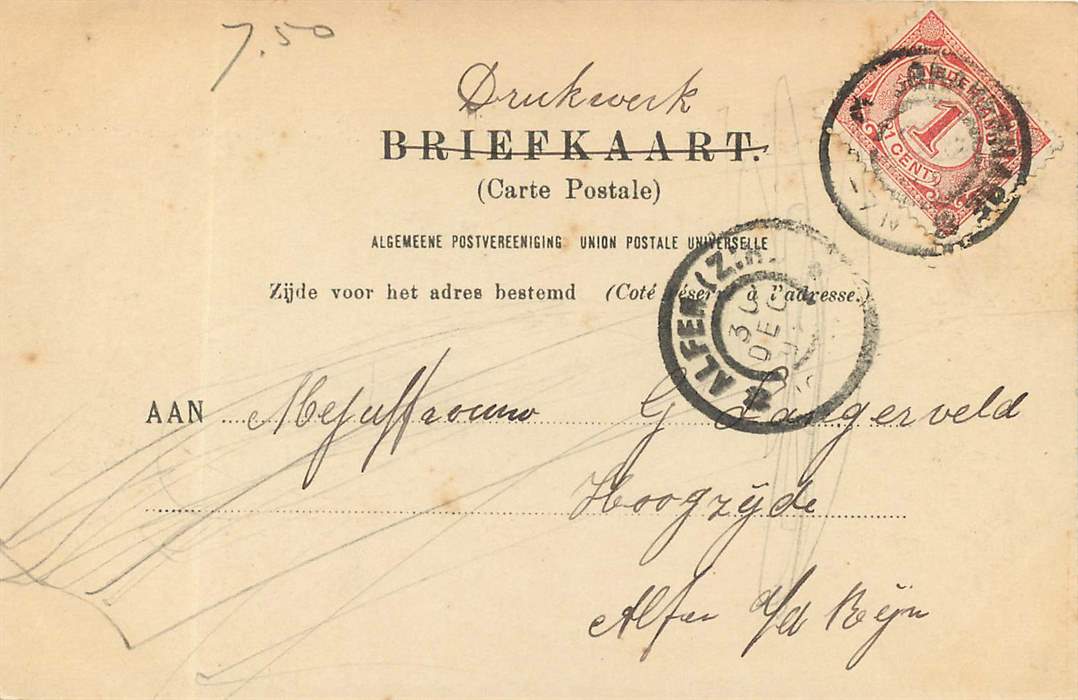 7.50
Drukwerk
BRIEFKAART.
(Carte Postale)
ALGEMEENE POSTVEREENIGING UNION POSTALE UNIVERSELLE
Zijde voor het adres bestemd (Coté réservé à l'adresse.)
AAN Mejuffrouw G Langerveld
Hoogzijde
Alfen a/d Rijn
NEDERLAND
1
1 CENT
ALFEN (Z.H.)
DEC